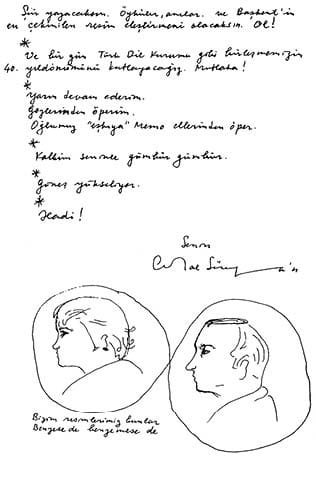 Şiir yazacaksın. Öyküler, anılar. ve Başkent'in
en çekinilen resim eleştirmeni olacaksın. Ol!
*
Ve bir gün Türk Dil Kurumu gibi birleşmemizin
40. yıldönümünü kutlayacağız. Mutlaka!
*
Yarın devam ederim.
Gözlerinden öperim.
Oğlumuz "eşkıya" Memo ellerinden öper.
*
Kalbim seninle gümbür gümbür.
*
Güneş yükseliyor.
*
Hadi!
Senin
Cemal Süreya'n
Bizim resmimiz bunlar
Benzese de benzemese de